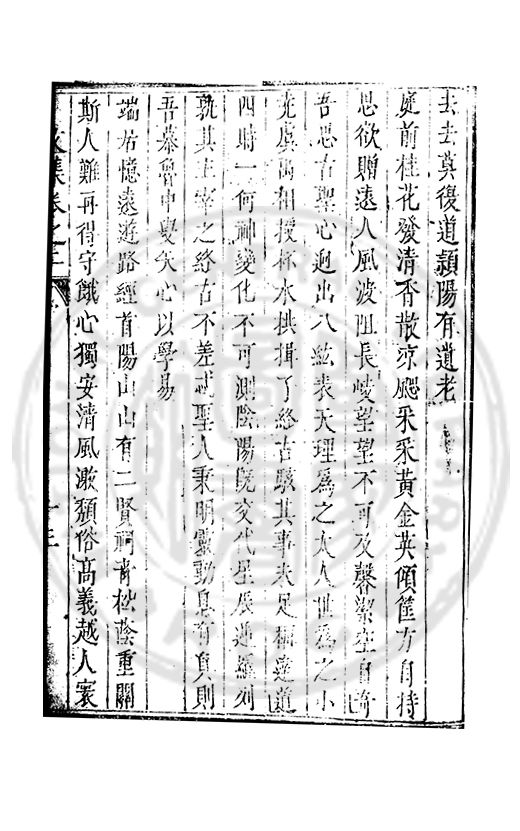 去去莫後道潁陽有遺老
庭前桂花發清香散涼飈采采黃金英傾筐方自持
思欲贈遠人風波阻長岐望望不可及馨潔空自奇
吾思古聖心迥出八紘表天理為之大人世為之小
堯虞禹相授杯水拱揖了終古駭其事未足稱達道
四時一何神變化不可測陰陽既交代星辰遞羅列
孰其主宰之終古不差忒聖人秉明靈動息有真則
吾慕魯中叟矢心以學易
端居憶遠遊路經首陽山山有二賢祠青松蔭重關
斯人難再得守餓心獨安清風激頹俗高義越人寰
文集卷之三